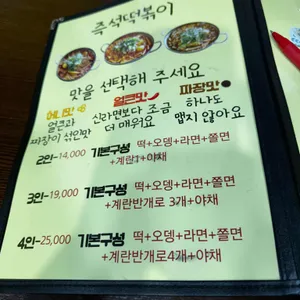 즉석떡볶이
맛을 선택해 주세요
얼큰맛 짜장맛
얼큰과 신라면보다 조금 하나도
짜장이 섞인맛 더 매워요 맵지 않아요
2인-14,000 기본구성 떡+오뎅+라면+쫄면
+계란1+야채
3인-19,000 기본구성 떡+오뎅+라면+쫄면
+계란반개로 3개+야채
4인-25,000 기본구성 떡+오뎅+라면+쫄면
+계란반개로4개+야채